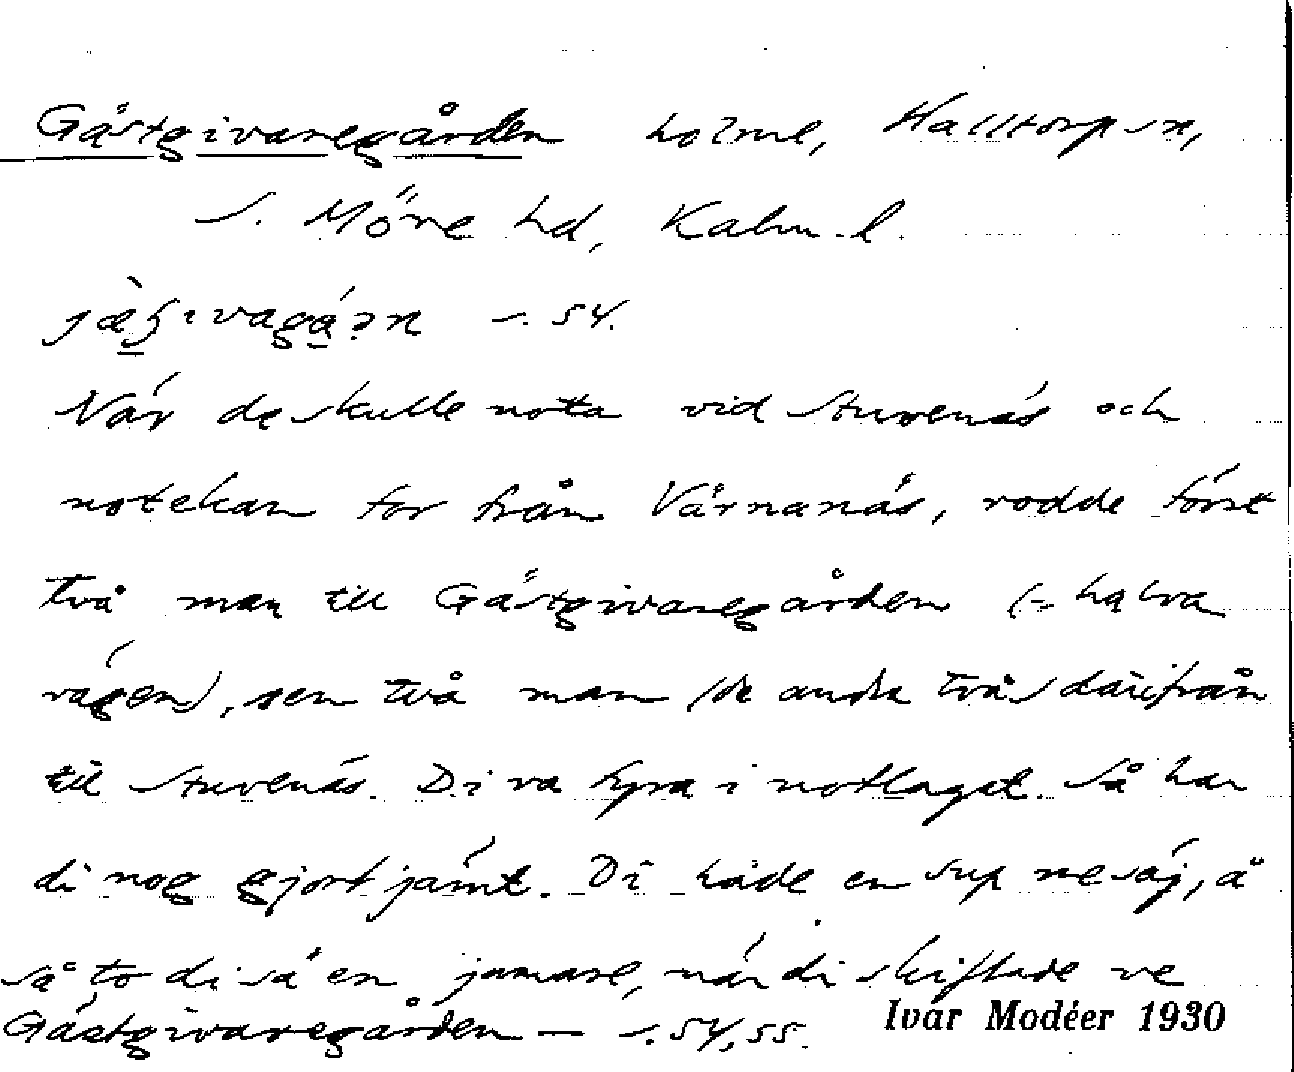 Gästgivaregården holme, Halltorp sn,
S. Möre hd, Kalm. l.
s. 54.
När de skulle nota vid Stuvenäs och
notekan for från Värnanäs, rodde först
två man till Gästgivaregården (= halva
vägen), sen två man (de andra två) därifrån
till Stuvenäs. Di va fyra i notlaget. Så har
di nog gjort jämt. Di hade en sup me säj, å
så to di så en jamare, när di skiftade ve
Gästgivaregården — s. 54, 55.
Ivar Modéer 1930